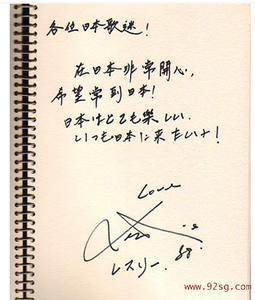 各位日本歌迷!
在日本非常開心,
希望常到日本!
日本はとても楽しい.
いつも日本に来たいナ!
Love
レスリー.
www.92sg.com